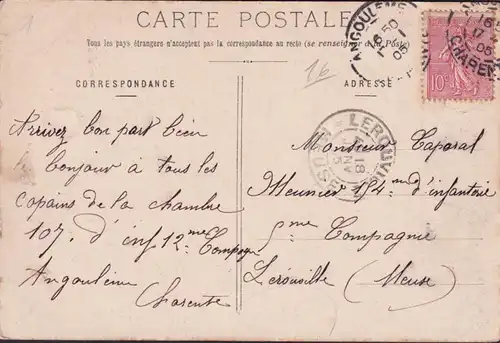 CARTE POSTALE
Tous les pays étrangers n'acceptent pas la correspondance au recto (se renseigner à la Poste)
CORRESPONDANCE
ADRESSE
16
Arrivez bon part bien
bonjour à tous les
copains de la chambre
107. d'inf 12me Compagn
Angoulême
Charente
Monsieur Caporal
Meunier 154 me d'infanterie
me Compagnie
Lerouville (Meuse)
ANGOULEME
6 50
05
16
17
05
CHARENTE
10c
LEROUVILLE
18
MEUSE